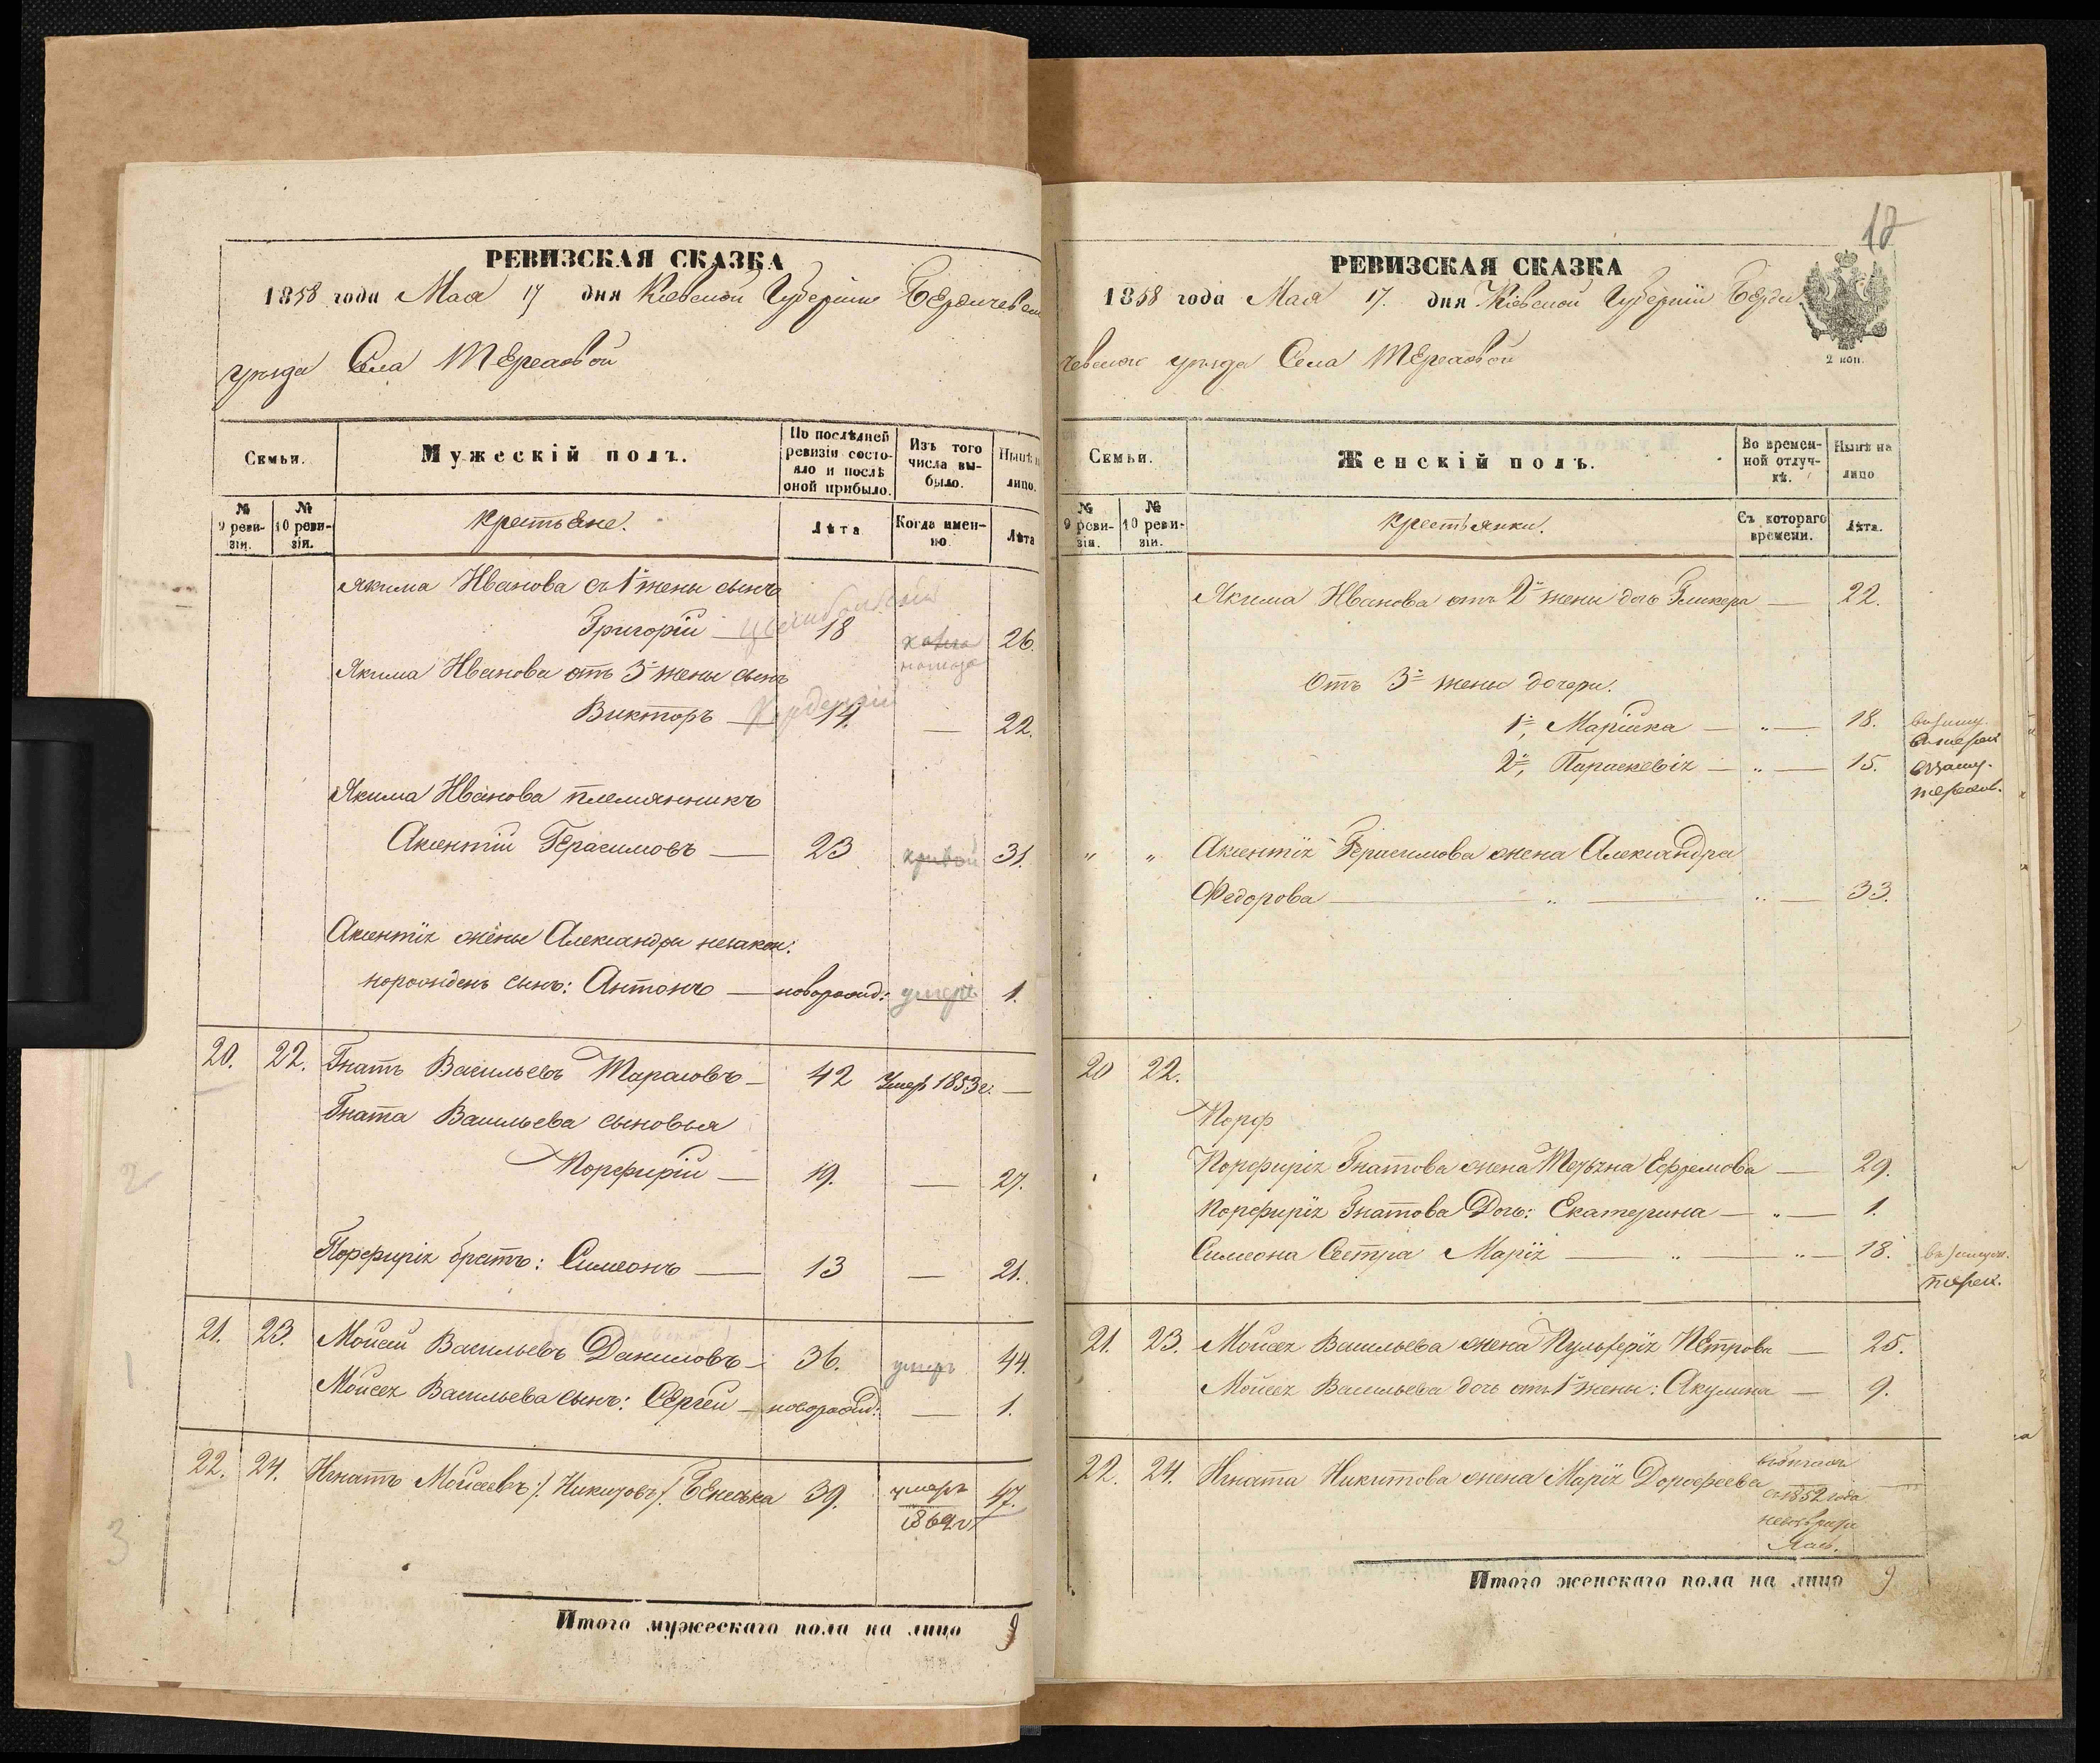 РЕВИЗСКАЯ СКАЗКА
1858 года Мая 17 дня Кіевской Губерніи Бердичевска
уѣзда Села
Семьи.
Мужескій полъ.
По послѣдней ревизіи состояло и послѣ оной прибыло.
Изъ того числа выбыло.
Нынѣ н лицо.
№ 9 ревизіи.
№ 10 ревизіи.
Крестьяне.
Лѣта
Когда именно
Лѣта
Якима Иванова съ 1й жены сынъ
Григорій — 18 26.
Якима Иванова отъ 3й жены сынъ
Викторъ — 14. — 22.
Якима Иванова племянникъ
Аксентій Герасимовъ — 23 кривой 31.
Аксентія жены Александры незакон:
норожденъ сынъ: Антонъ — новорожд: умеръ 1.
20. 22. Гнатъ Васильевъ Тарасовъ — 42 Умер 1853 г. —
Гната Васильева сыновья
Порфирій — 19. — 27.
Порфирія братъ: Симеонъ — 13 — 21.
21. 23. Мойсей Васильевъ Даниловъ — 36. умеръ 44.
Мойсея Васильева сынъ: Сергей — новорожд: — 1.
22. 24. Игнатъ Мойсеевъ /: Никитовъ /: Бенедька 39. умеръ 47.
1869 г
Итого мужескаго пола на лицо 9
12
РЕВИЗСКАЯ СКАЗКА
1858 года Мая 17. дня Кіевской Губерніи Берди
чевскаго уѣзда Села
2 коп.
Семьи.
Женскій полъ.
Во временной отлучкѣ.
Нынѣ на лицо
№ 9 ревизіи.
№ 10 ревизіи.
Крестьянки.
Съ котораго времени.
Лѣта.
Якима Иванова отъ 2й жены дочь Гликера — 22.
Отъ 3й жены дочери.
1я, Марійка — „ — 18.
2я, Параскевія — „ — 15.
„ „ Аксентія Герасимова жена Александра
Федорова — „ — „ — 33.
20 22.
Порф
Порфирія Гнатова жена Татьяна Ефремова — 29.
Порфирія Гнатова Дочь: Екатерина — „ — 1.
Симеона Сестра Марія — „ — „ — 18.
21. 23. Мойсея Васильева жена Пульхерія Петрова — 25.
Мойсея Васильева дочь отъ 1й жены: Акулина — 9.
22. 24. Игната Никитова жена Марія Дорофеева
съ 1852 года
Итого женскаго пола на лицо 9